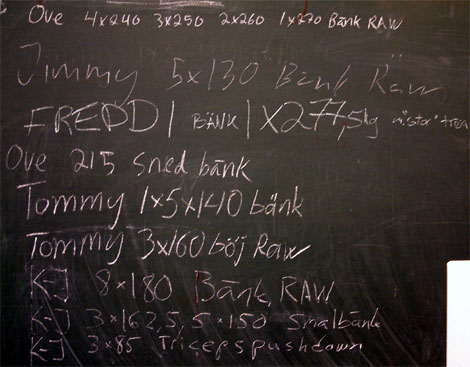 Ove 4x240 3x250 2x260 1x270 Bänk RAW
Jimmy 5x130 Bänk Raw
FREDD| BÄNK 1X277,5kg nästan trea
Ove 215 Sned bänk
Tommy 1x5x140 bänk
Tommy 3x160 böj Raw
K-J 8x180 Bänk, RAW
K-J 3x162,5, 5x150 Smalbänk
K-J 3x85 Triceps pushdown